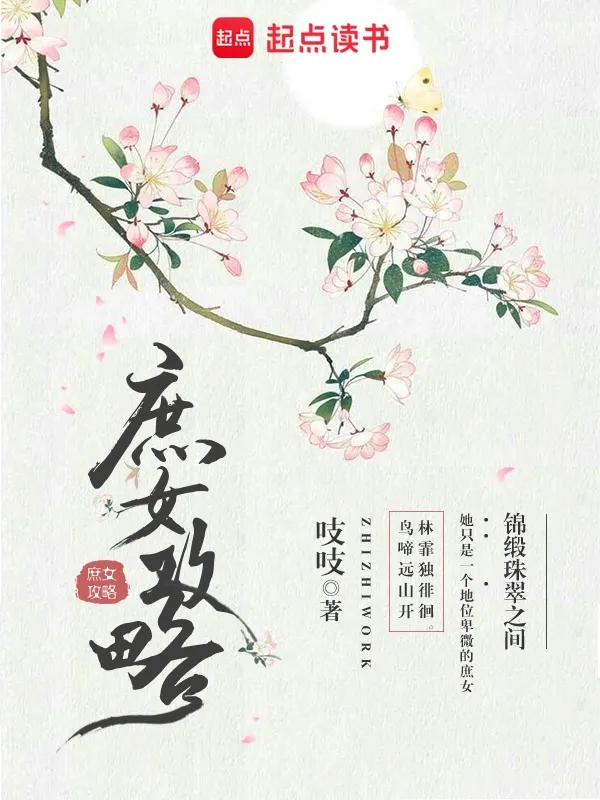 起点 起点读书
锦缎珠翠之间
她只是一个地位卑微的庶女
林霏独徘徊。
鸟啼远山开
ZHIZHIWORK
吱吱◎著
庶女攻略
庶女
攻略